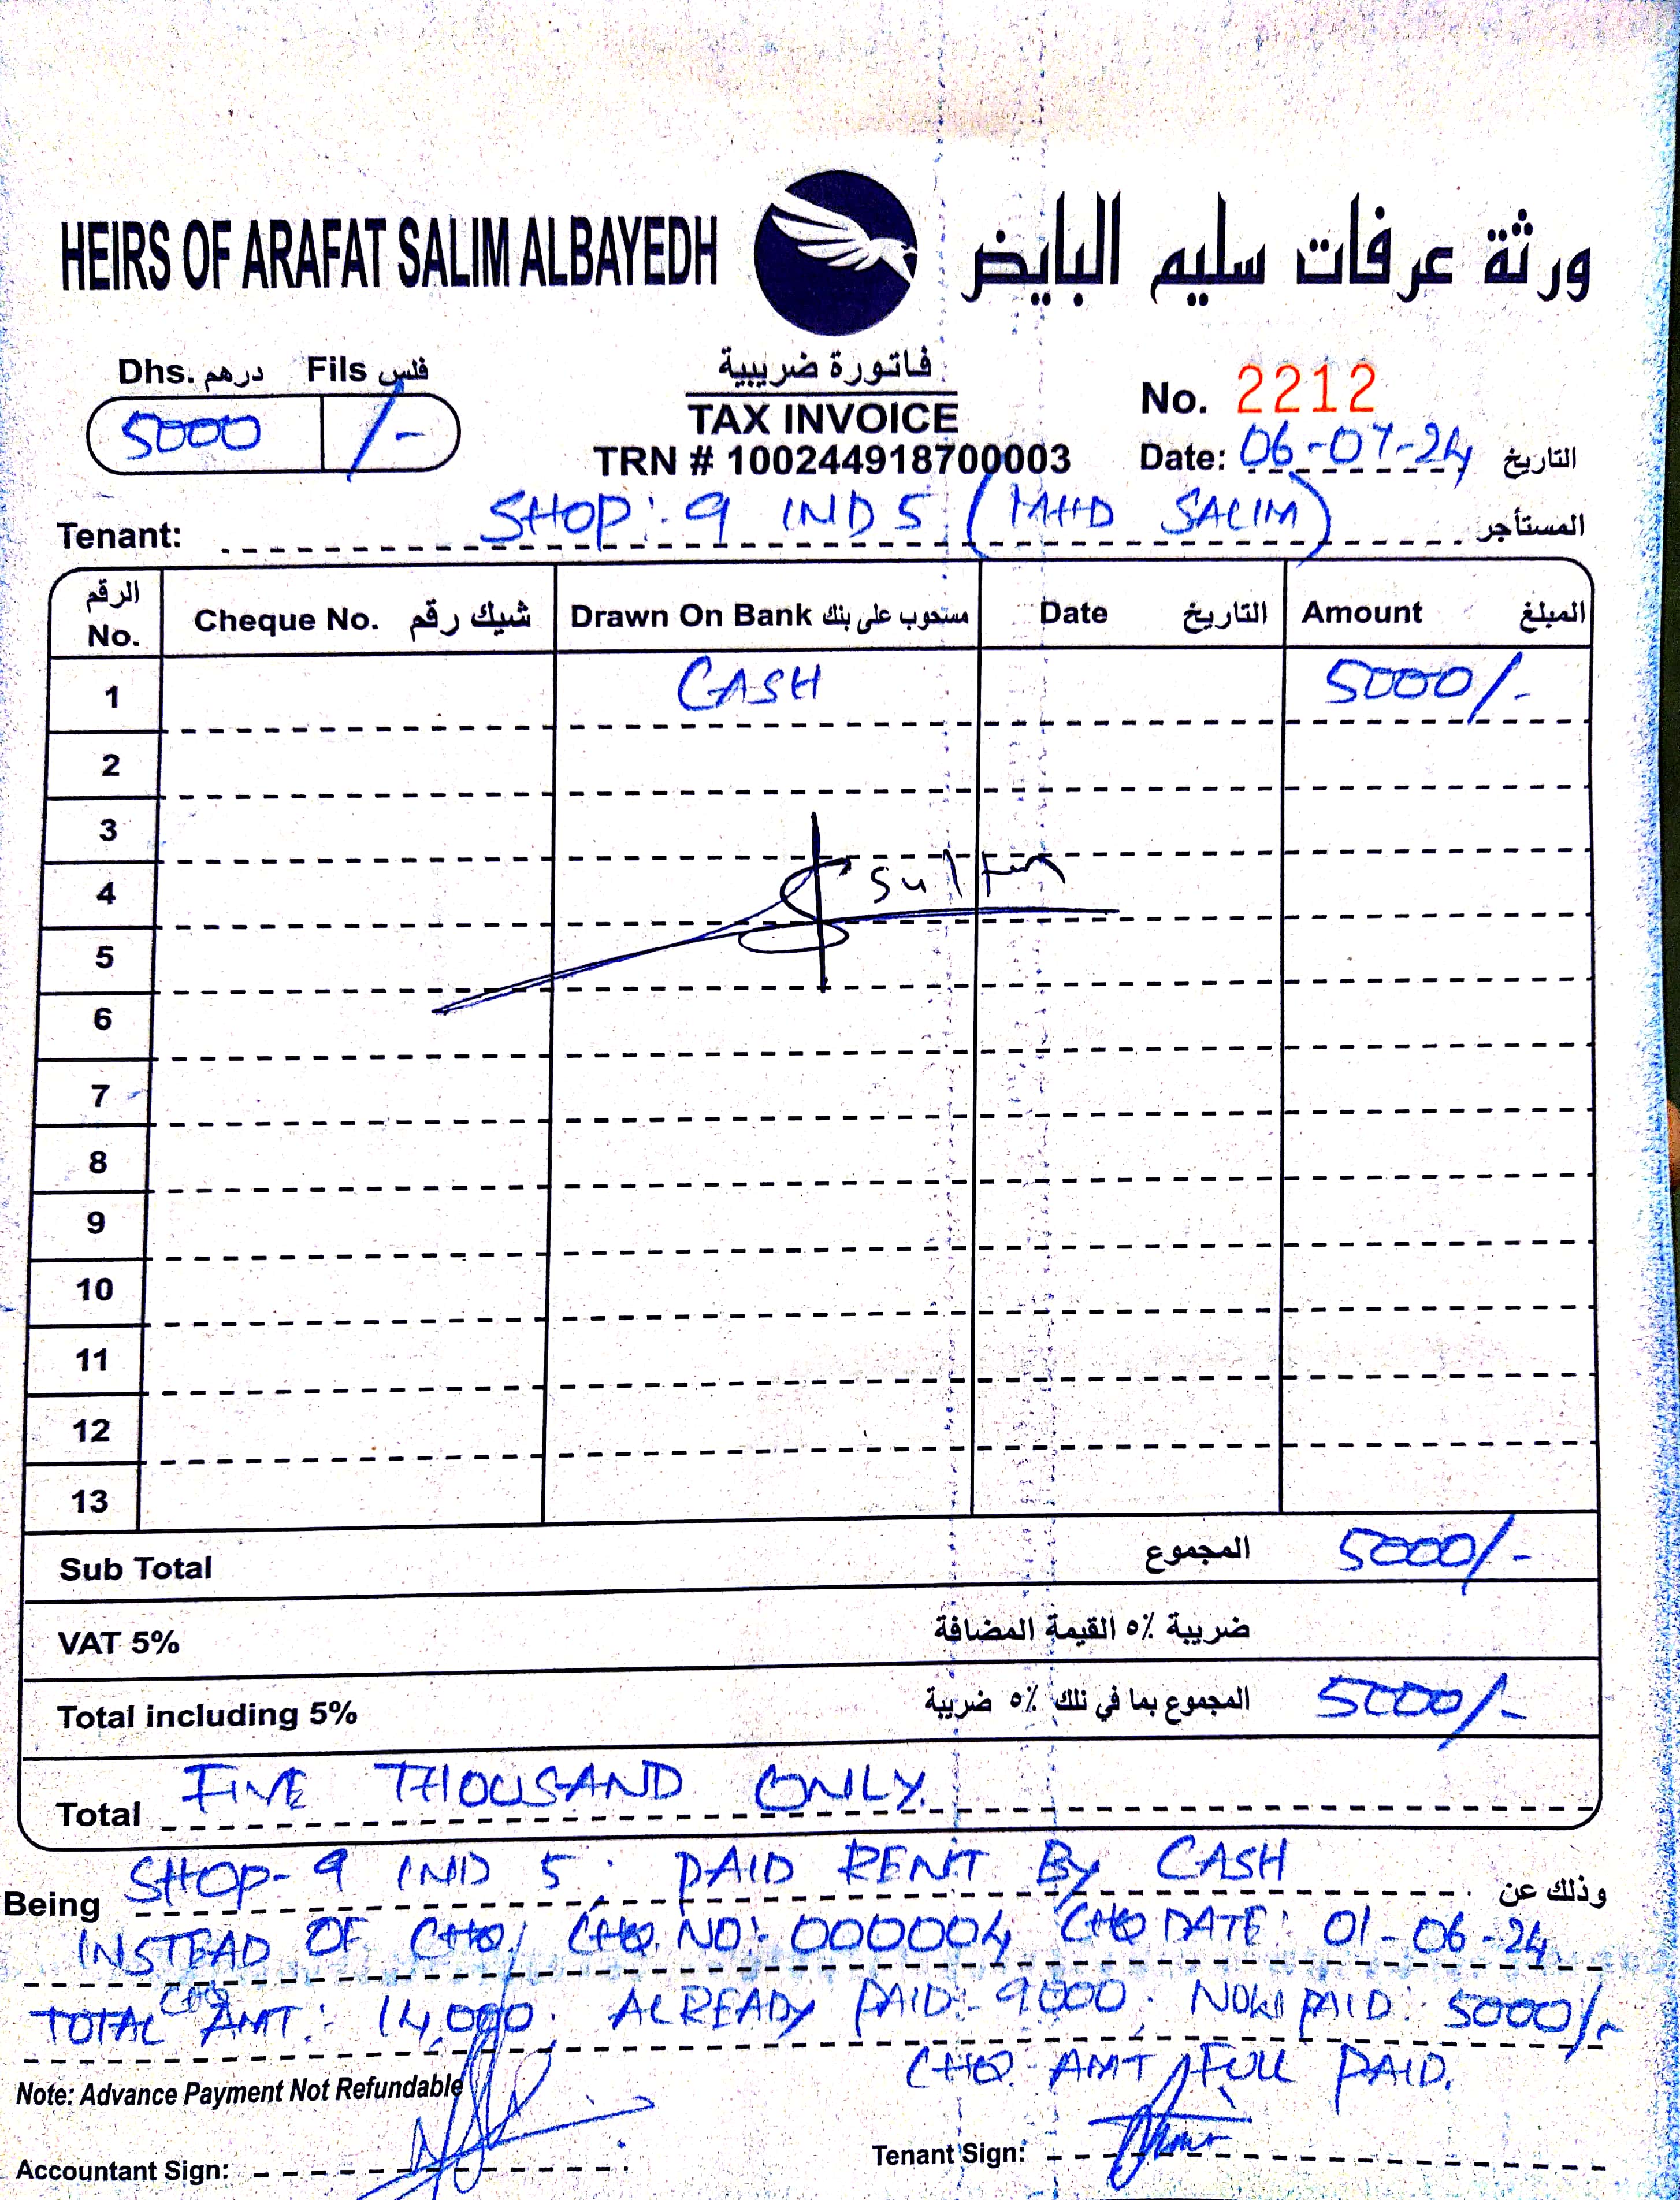 HEIRS OF ARAFAT SALIM ALBAYEDH ورثة عرفات سليم البايض
Dhs. درهم Fils فلس
5000 /-
فاتورة ضريبية
TAX INVOICE
TRN # 100244918700003
No. 2212
Date: 06-07-24 التاريخ
Tenant: SHOP: 9 IND 5 (MHD SALIM) المستأجر
الرقم No. Cheque No. شيك رقم Drawn On Bank مسحوب على بنك Date التاريخ Amount المبلغ
1 CASH 5000/-
2
3
4 Sultan
5
6
7
8
9
10
11
12
13
Sub Total المجموع 5000/-
VAT 5% ضريبة ٥٪ القيمة المضافة
Total including 5% المجموع بما في تلك ٥٪ ضريبة 5000/-
Total FIVE THOUSAND ONLY.
Being SHOP-9 IND 5, PAID RENT By CASH وذلك عن
INSTEAD OF CHQ, CHQ. NO:- 000004 CHQ DATE: 01-06-24
TOTAL CHQ AMT: 14,000. ALREADY PAID:- 9000. NOW PAID: 5000/-
CHQ. AMT FULL PAID.
Note: Advance Payment Not Refundable
Accountant Sign:
Tenant Sign: